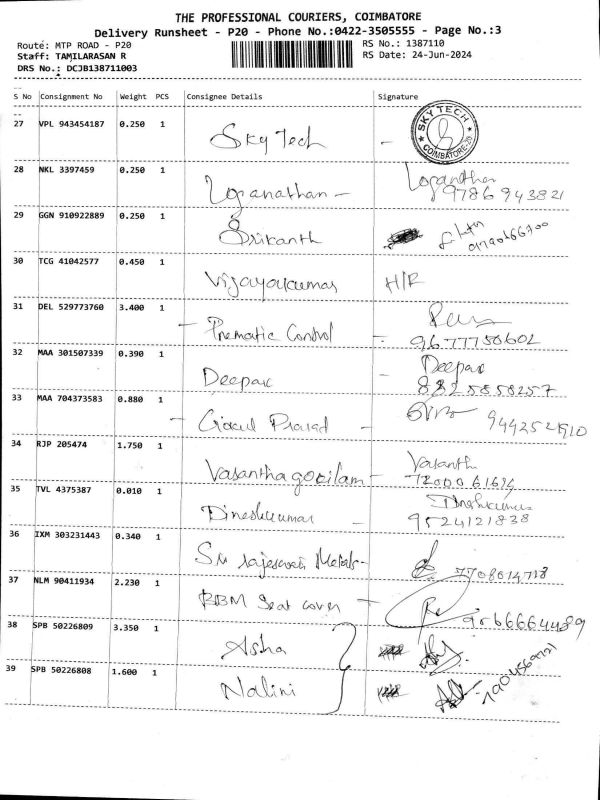 THE PROFESSIONAL COURIERS, COIMBATORE
Delivery Runsheet - P20 - Phone No.:0422-3505555 - Page No.:3
Route: MTP ROAD - P20 RS No.: 1387110
Staff: TAMILARASAN R RS Date: 24-Jun-2024
DRS No.: DCJB138711003
S No Consignment No Weight PCS Consignee Details Signature
27 VPL 943454187 0.250 1 Sky Tech - SKY TECH COIMBATORE-20
28 NKL 3397459 0.250 1 Loganathan - Loganathan
9786943821
29 GGN 910922889 0.250 1 Srikanth
30 TCG 41042577 0.450 1 Vijayakumar H/R
31 DEL 529773760 3.400 1 - Prematic Control -
9677750602
32 MAA 301507339 0.390 1 Deepak - Deepak
8825858257
33 MAA 704373583 0.880 1 - Gocul Prasad -
34 RJP 205474 1.750 1 Vasantha gocilam - Vasanth
35 TVL 4375387 0.010 1 Dineshkumar - Dineshkumar
9524121838
36 IXM 303231443 0.340 1 Sri rajeswari Metals-
37 NLM 90411934 2.230 1 BBM Seat cover -
38 SPB 50226809 3.350 1 Asha
39 SPB 50226808 1.600 1 Nalini